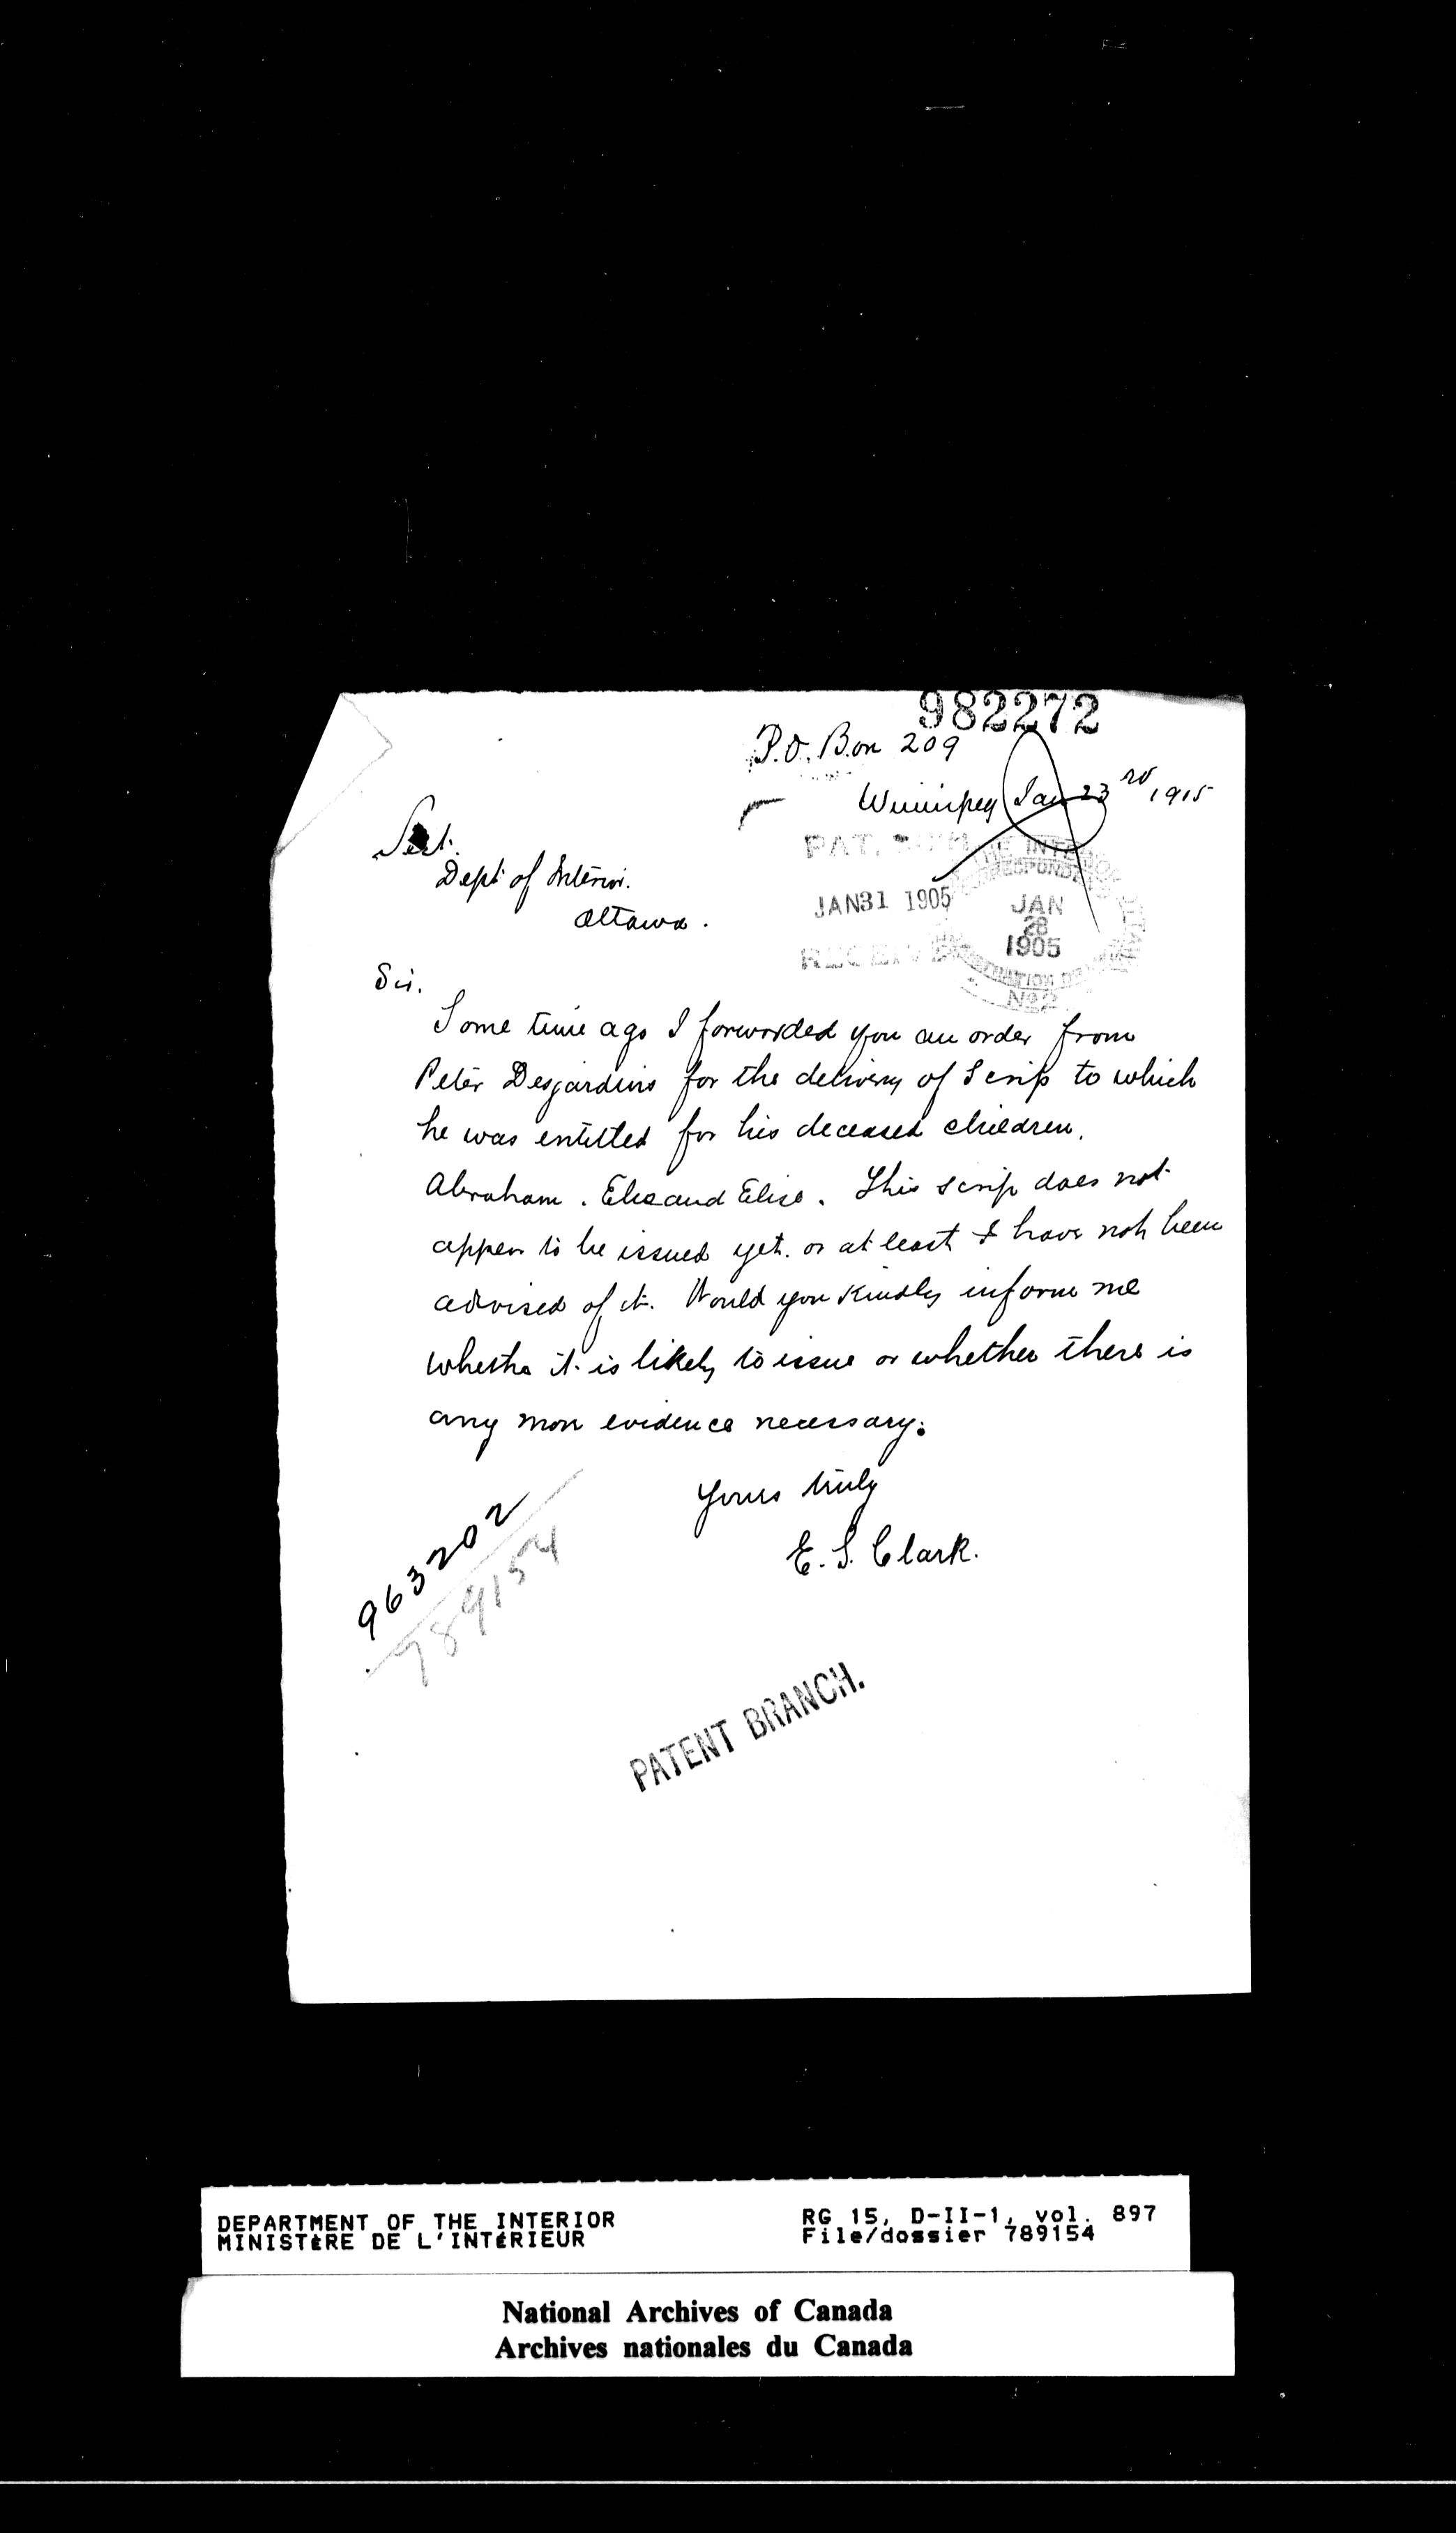 982272
P.O. Box 209
Winnipeg Jan 23rd 1915
Sect.
Dept of Interior.
Ottawa.
PAT.
JAN 31 1905
RECEIVED
THE INTERIOR
CORRESPONDENCE
JAN
28
1905
REGISTRATION
No 2
Sir.
Some time ago I forwarded you an order from
Peter Desjardins for the delivery of Scrip to which
he was entitled for his deceased children.
Abraham. Elie and Elise. This scrip does not
appear to be issued yet. or at least I have not been
advised of it. Would you kindly inform me
whether it is likely to issue or whether there is
any more evidence necessary.
Yours truly
E. S. Clark.
963202
789154
PATENT BRANCH.
DEPARTMENT OF THE INTERIOR
MINISTÈRE DE L'INTÉRIEUR
RG 15, D-II-1, vol. 897
File/dossier 789154
National Archives of Canada
Archives nationales du Canada